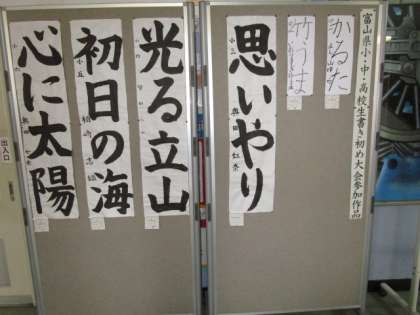 富山県小・中・高校生書き初め大会参加作品
かるた
竹うま
思いやり
光る立山
初日の海
小五
心に太陽
小六
出入口